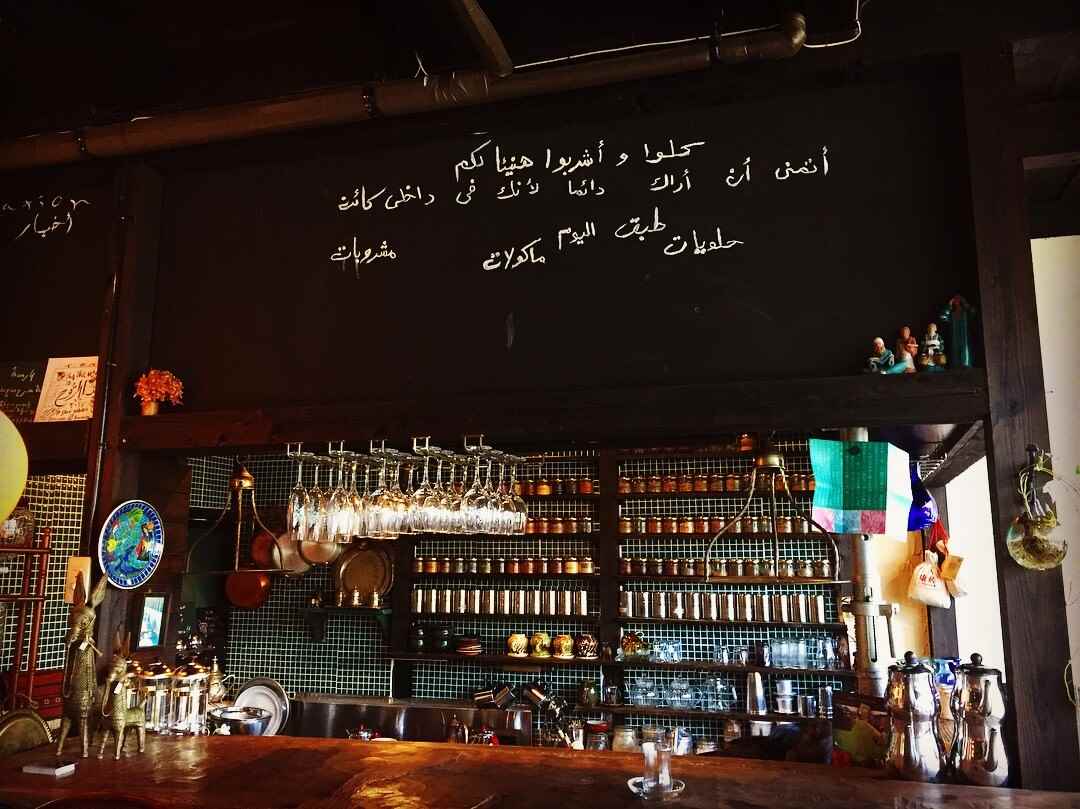 كلوا و أشربوا هنيئا لكم
أتمنى أن أراك دائما لأنك فى داخلى كائن
حلويات طبق اليوم ماكولات مشروبات
أخبار